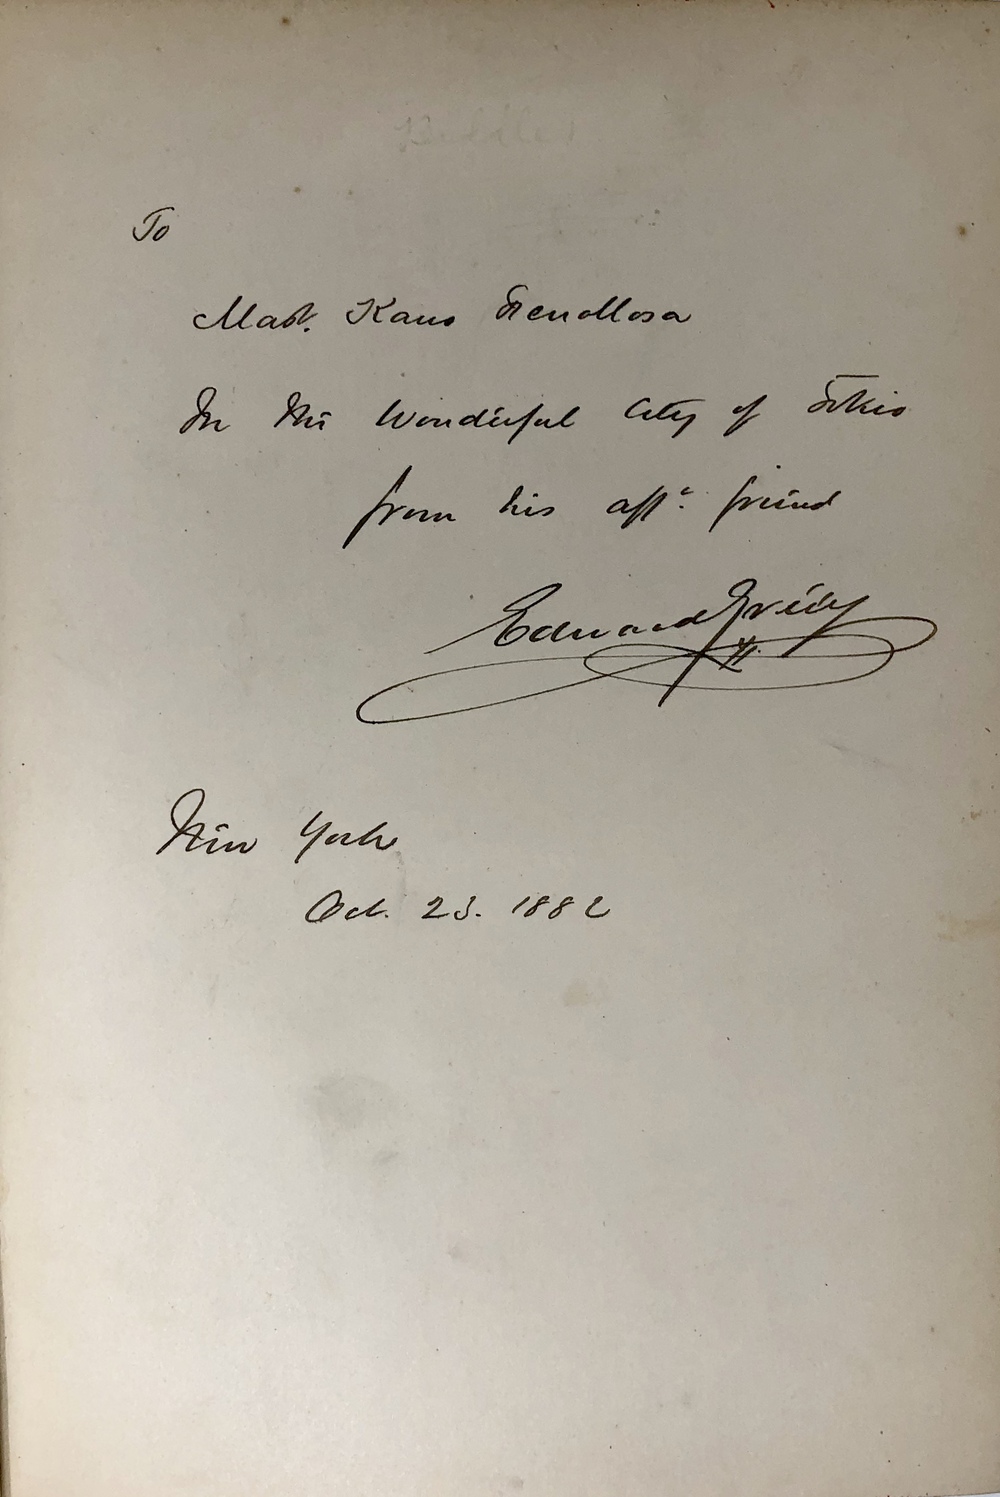 To
Mast. Kano Fenollosa
In the Wonderful City of Tokio
from his affe. friend
Edward Greey
New York
Oct. 23. 1882